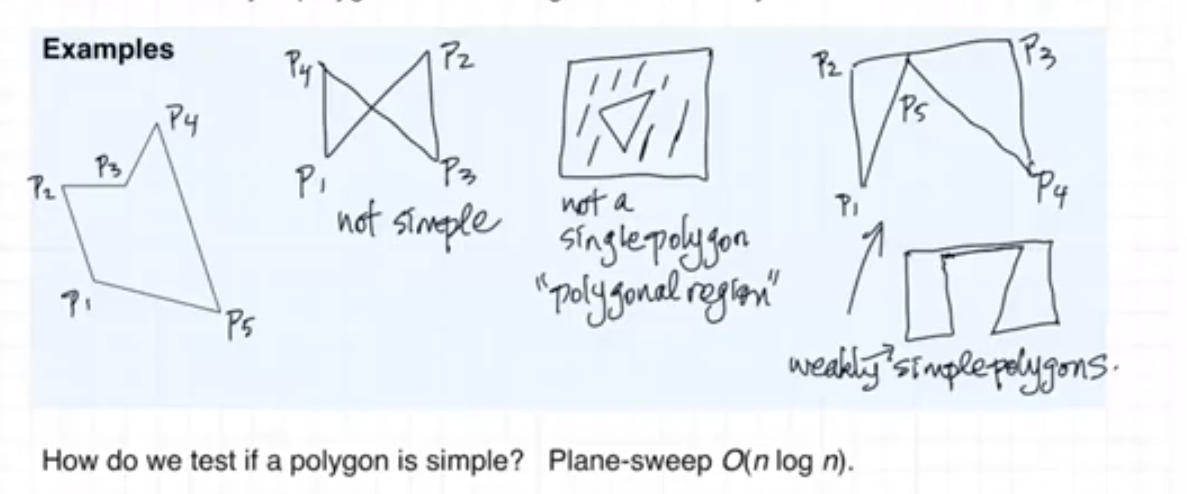 Examples
P4
P3
P2
P1
P5
P4
P2
P1
P3
not simple
not a
single polygon
"polygonal region"
P2
P3
P5
P1
P4
weakly simple polygons.
How do we test if a polygon is simple? Plane-sweep O(n log n).